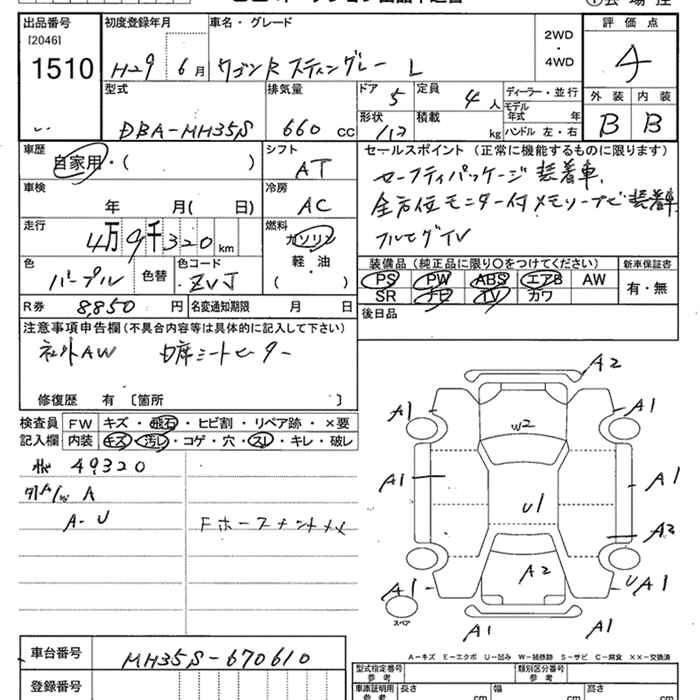 出品番号
[2046]
1510
初度登録年月
H29 6月
車名・グレード
ワゴンR スティングレー L
2WD
・
4WD
評価点
4
外装 内装
B B
型式
DBA-MH35S
排気量
660 cc
ドア 5
定員 4 人
ディーラー・並行
モデル年式 年
形状
積載 kg
ハンドル 左・右
車歴
自家用・( )
シフト
AT
セールスポイント (正常に機能するものに限ります)
セーフティパッケージ 装着車.
全方位モニター付メモリーナビ装着車
フルセグTV
車検
年 月( 日)
冷房
AC
走行
4万9千320km
燃料
ガソリン
軽・油
( )
色
パープル
色替
色コード
ZVJ
装備品 (純正品に限り○をつけてください)
新車保証書
PS PW ABS エアB AW
有・無
SR ナビ TV カワ
R券 8,850 円
名変通知期限 月 日
後日品
注意事項申告欄 (不具合内容等は具体的に記入して下さい)
社外AW
シートヒーター
修復歴 有 〔箇所 〕
検査員
記入欄
FW キズ・飛石・ヒビ割・リペア跡・×要
内装 キズ・汚レ・コゲ・穴・スレ・キレ・破レ
49320
A
A-U
A2
A1
A1
W2
A1
U1
A1
A2
A2
A1
UA1
スペア
A1
A1
A-キズ E-エクボ U-凹み W-補修跡 S-サビ C-腐食 ××-交換済
車台番号
MH35S-670610
登録番号
型式指定番号
参考
類別区分番号
参考
車庫証明用
参考
長さ cm
幅 cm
高さ cm